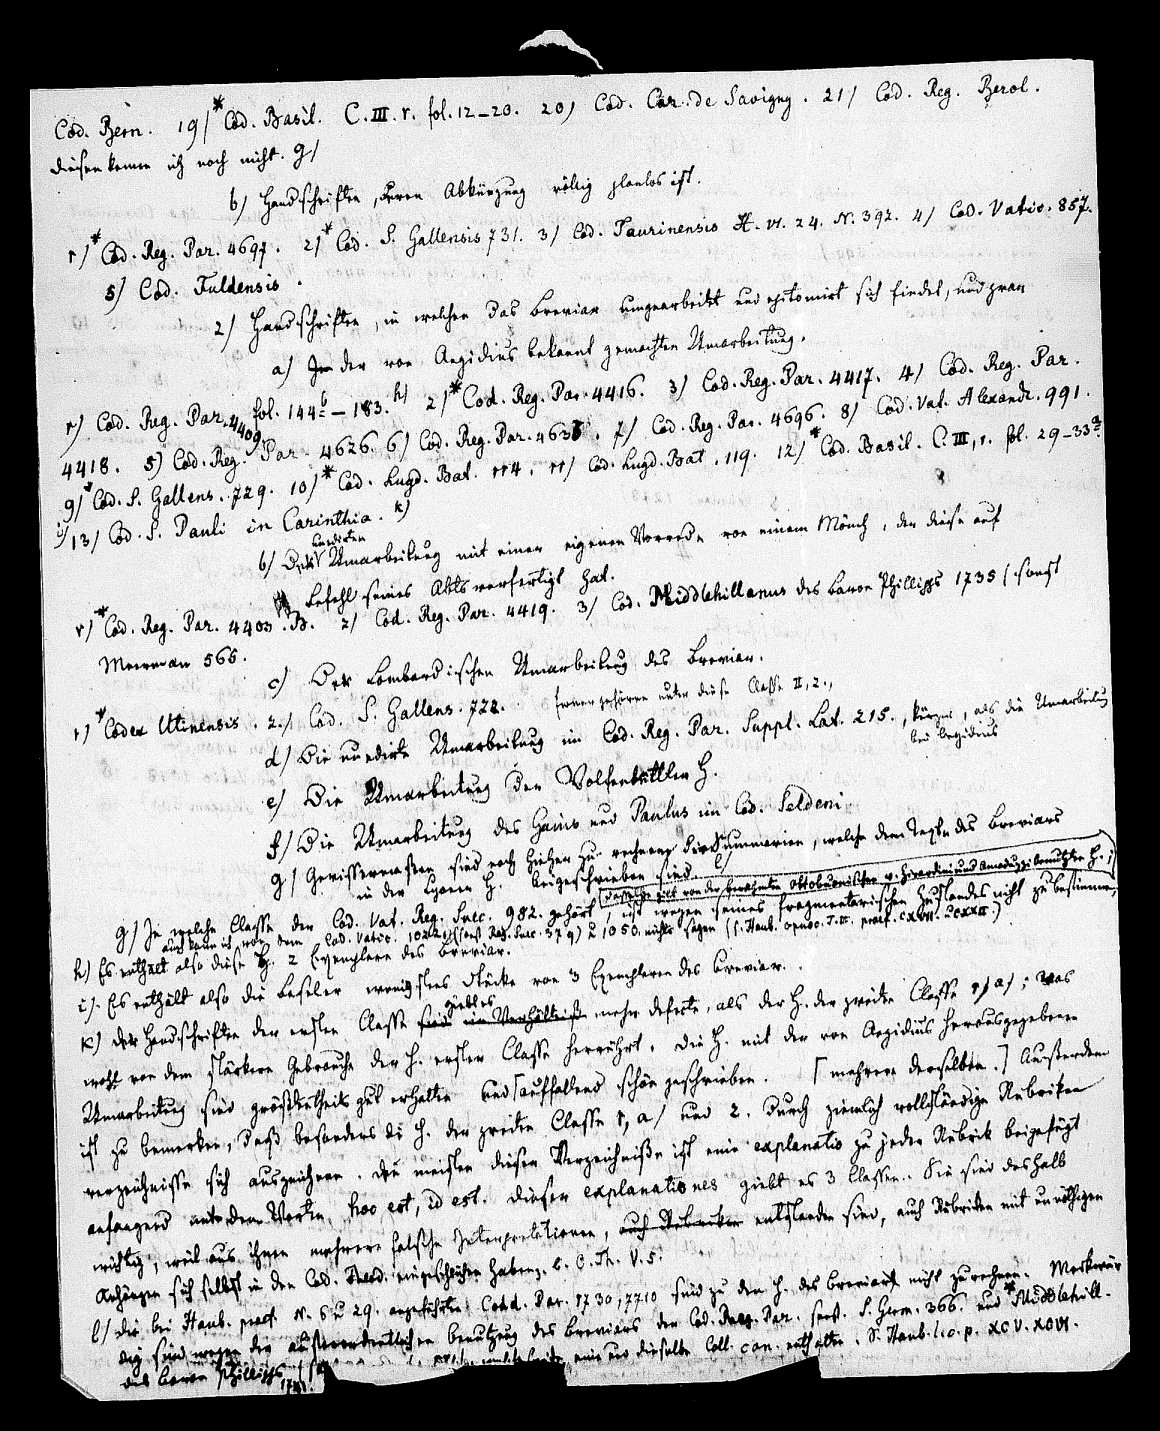 Cod. Bern. 19) * Cod. Basil. C. III. r. fol. 12–20. 20) Cod. Car. de Savigny. 21) Cod. Reg. Berol.
diesen kenne ich noch nicht. g)
b) Handschriften, deren Abkürzung völlig planlos ist.
1) * Cod. Reg. Par. 4697. 2) * Cod. S. Gallensis 731. 3) Cod. Taurinensis H. VI. 24. N. 392. 4) Cod. Vatic. 857.
5) Cod. Fuldensis.
2) Handschriften, in welchen das Breviar umgearbeitet und epitomirt sich findet, und zwar
a) In der von Aegidius bekannt gemachten Umarbeitung.
1) Cod. Reg. Par. 4409. fol. 144b–183. h) 2) * Cod. Reg. Par. 4416. 3) Cod. Reg. Par. 4417. 4) Cod. Reg. Par.
4418. 5) Cod. Reg. Par. 4626. 6) Cod. Reg. Par. 4633. 7) Cod. Reg. Par. 4696. 8) Cod. Vat. Alexandr. 991.
9) * Cod. S. Gallens. 729. 10) * Cod. Lugd. Bat. 114. 11) Cod. Lugd. Bat. 119. 12) * Cod. Basil. C. III, 1. fol. 29–33a.
i) 13) Cod. S. Pauli in Carinthia. k)
b) Der Umarbeitung mit einer eigenen Vorrede von einem Mönch, der diese auf
Befehl seines Abts verfertigt hat.
1) * Cod. Reg. Par. 4403. B. 2) Cod. Reg. Par. 4419. 3) Cod. Middlehillanus des Baron Phillipps 1735 (sonst
Meerman 565.
c) Der Lombardischen Umarbeitung des Breviar.
1) * Codex Utinensis. 2.) Cod. S. Gallens. 722. ferner gehören unter diese Classe II, 2.,
d) Die unedirte Umarbeitung im Cod. Reg. Par. Suppl. Lat. 215., kürzer, als die Umarbeitung
bei Aegidius
e) Die Umarbeitung der Wolfenbüttler H.
f) Die Umarbeitung des Gaius und Paulus im Cod. Seldeni
g) Gewissermaßen sind noch hieher zu rechnen die Summarien, welche dem Texte des Breviars
in der H. beigeschrieben sind. l)
g) In welche Classe der Cod. Vat. Reg. Suec. 982. gehört, ist wegen seines fragmentarischen Zustandes nicht zu bestimmen,
auch kann ich von dem Cod. Vatic. 1023 (sonst Reg. Suec. 579) u 1050. nichts sagen (s. Haub. opusc. T. II. praef. CXVII. CCXXII.)
h) Es enthält also diese H. 2 Exemplare des Breviar.
i) Es enthält also die Baseler wenigstens Stücke von 3 Exemplaren des Breviar.
k) Handschriften der ersten Classe giebt es mehr defecte, als der H. der zweiten Classe 1) a); was
wohl von dem stärkern Gebrauche der H. ersten Classe herrührt. Die H. mit der von Aegidius herausgegebenen
Umarbeitung sind größtentheils gut erhalten und auffallend schön geschrieben. [mehrere derselben.] Außerdem
ist zu bemerken, daß besonders die H. der zweiten Classe 1, a) und 2. durch ziemlich vollständige Rubriken
verzeichnisse sich auszeichnen. Den meisten dieser Verzeichniße ist eine explanatio zu jeder Rubrik beigefügt
anfangend mit den Worten hoc est, id est. Dieser explanationes giebt es 3 Classen. Sie sind deshalb
wichtig, weil aus ihnen mehrere falsche Interpretationen, auch Rubriken entstanden sind, auch Rubriken mit unnöthigen
Anhängen sich selbst in den Cod. Theod. eingeschlichen haben z. b. C. Th. V. 5.
l) Die bei Haub. praef. N. 6 u 29. angeführten Codd. Par. 1730, 7710 sind zu den H. des Breviars nicht zu rechnen. Merkwür
dig sind wegen der außerordentlichen Benutzung des Breviars der Cod. Reg. Par. sonst S. Germ. 366. und * Middlehill.
des Baron Phillipps eine und dieselbe Coll. can. enthalten. S. Haub. l. c. p. XCV. XCVI.